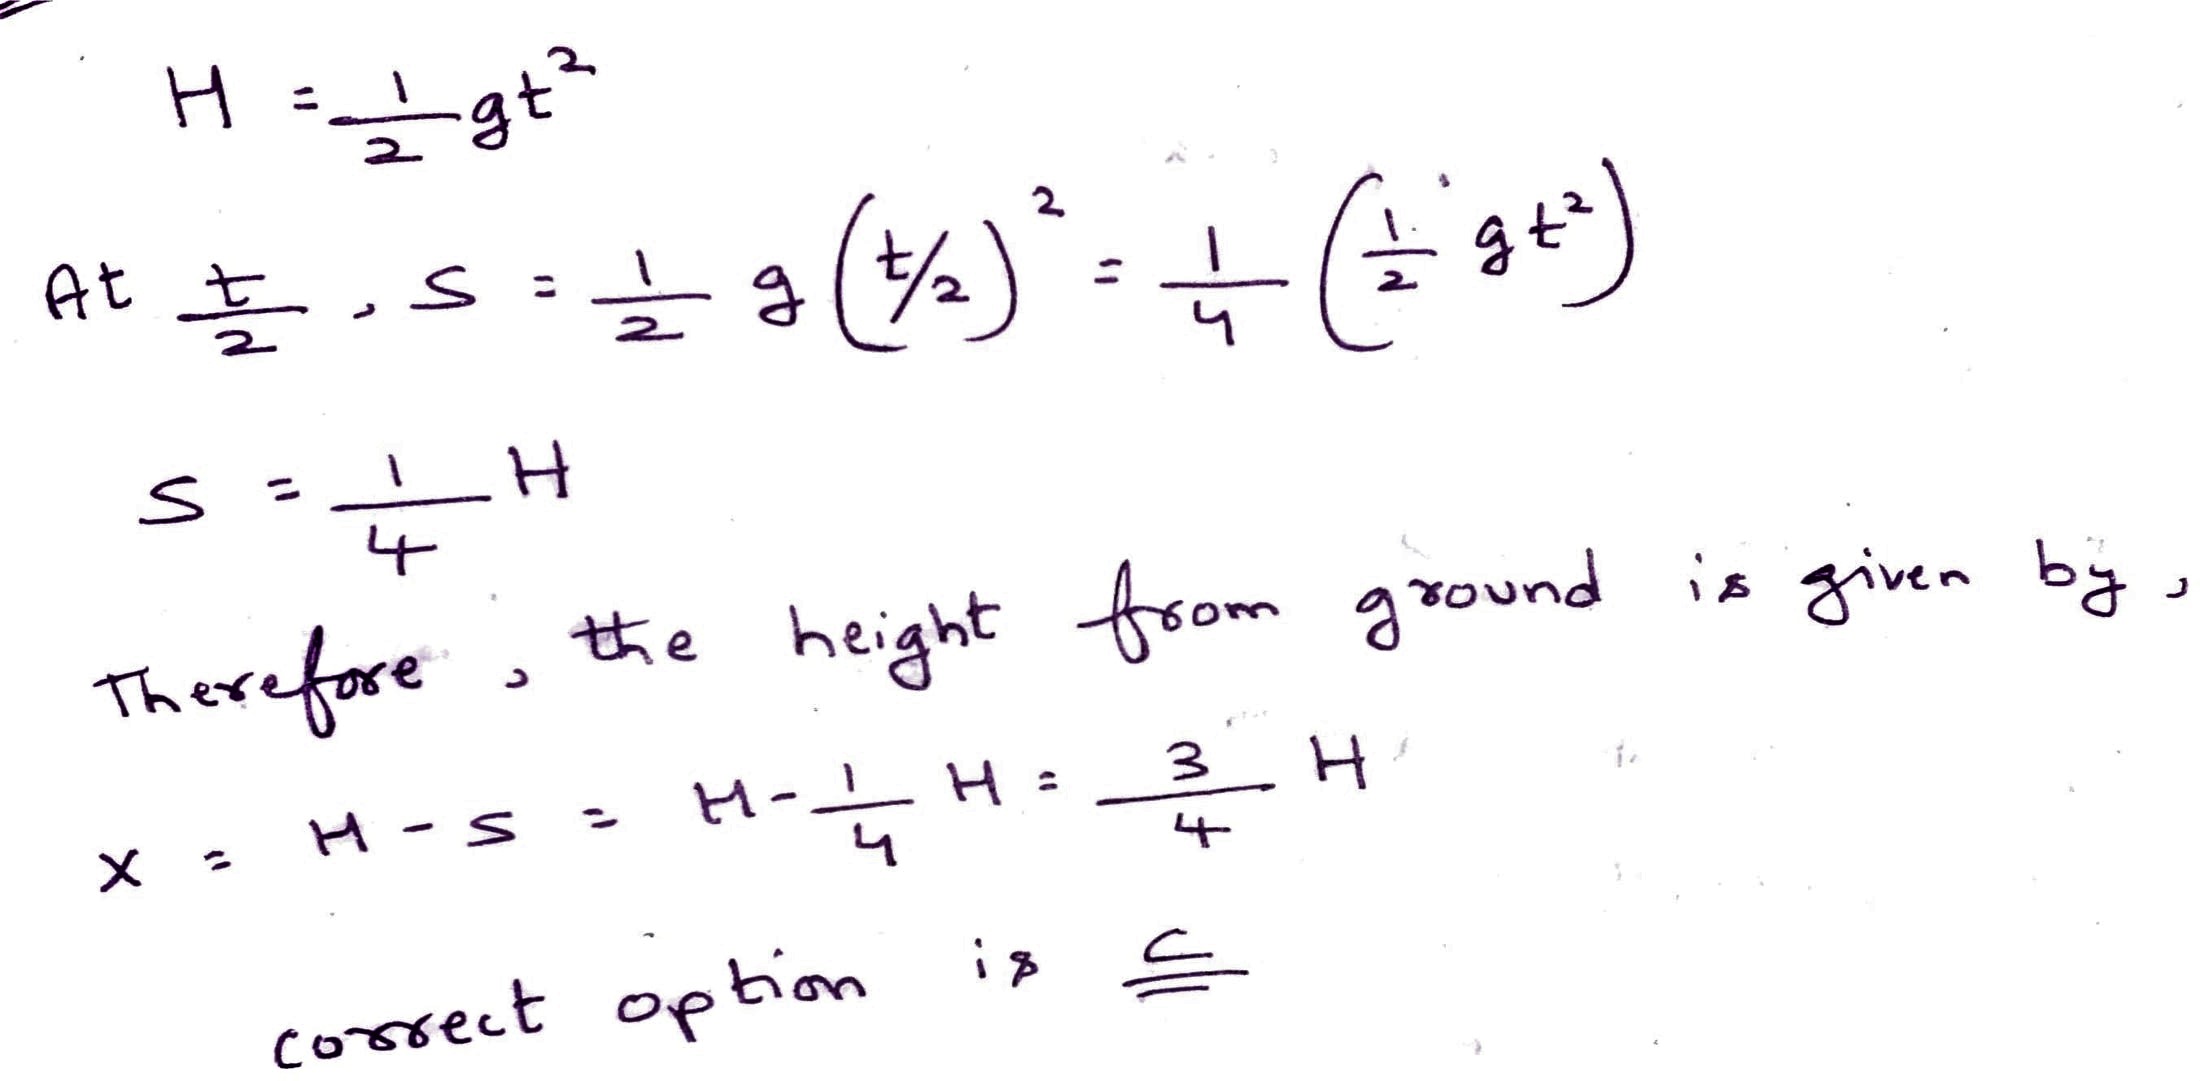 H = 1/2 gt²
At t/2, S = 1/2 g (t/2)² = 1/4 (1/2 gt²)
S = 1/4 H
Therefore, the height from ground is given by,
x = H - S = H - 1/4 H = 3/4 H
correct option is C